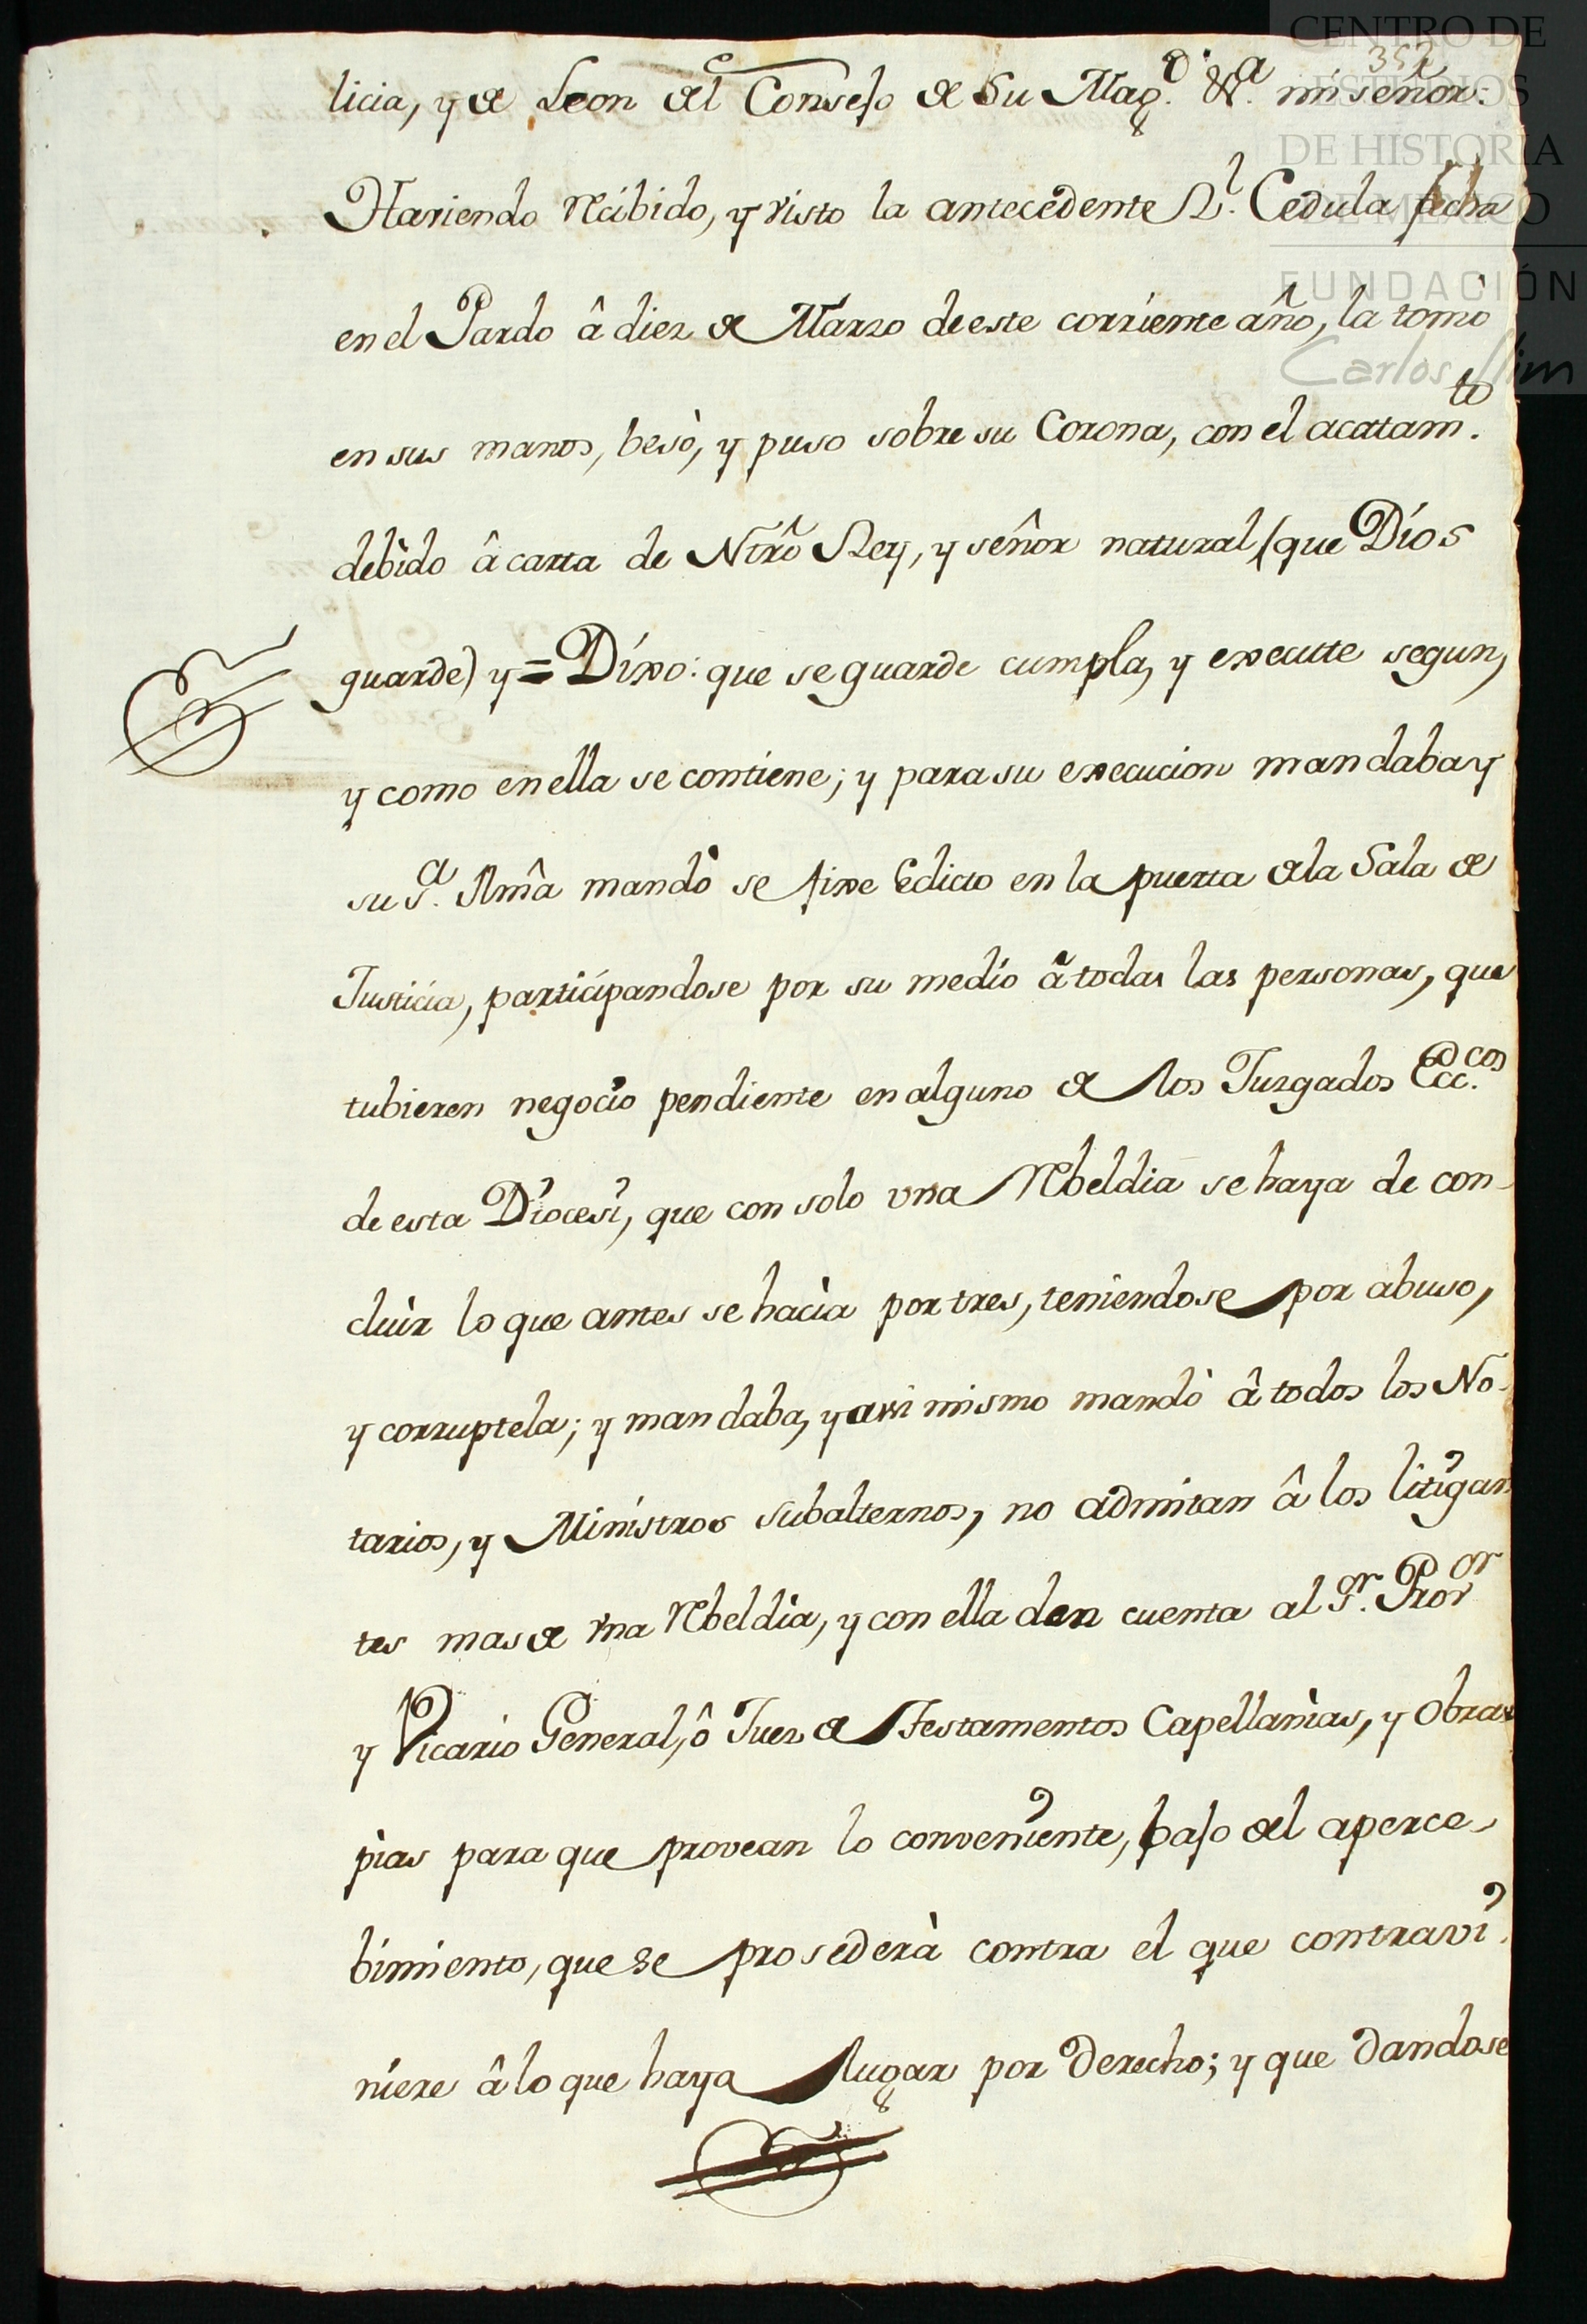 CENTRO DE
ESTUDIOS
DE HISTORIA
DE MÉXICO
FUNDACIÓN
Carlos Slim
licia, y de Leon del Consejo de Su Mag.d &.a mi señor:
Haviendo recibido, y visto la antecedente Rl. Cedula fecha
en el Pardo â diez de Marzo de este corriente año, la tomò
en sus manos, besò, y puso sobre su Corona, con el acatam.to
debido â carta de Ntrô Rey, y señor natural (que Dios
guarde) y = Dixo: que se guarde cumpla, y execute segun,
y como en ella se contiene; y para su execucion mandaba y
su S.a Ilmâ mandò se fixe Edicto en la puerta de la Sala de
Justicia, participandose por su medio â todas las personas, que
tubieren negocio pendiente en alguno de los Juzgados Ecc.cos
de esta Diocesi, que con solo una rebeldia se haya de con-
cluir lo que antes se hacia por tres, teniendose por abuso,
y corruptela; y mandaba, y assi mismo mandò â todos los No-
tarios, y Ministros subalternos, no admitan â los litigan
tes mas de una rebeldia, y con ella den cuenta al S.or Prov.or
y Vicario General, ô Juez de Testamentos Capellanias, y Obras
pias para que provean lo conveniente, bajo del aperce-
bimiento, que se prosederà contra el que contravi-
niere â lo que haya lugar por Derecho; y que dandose